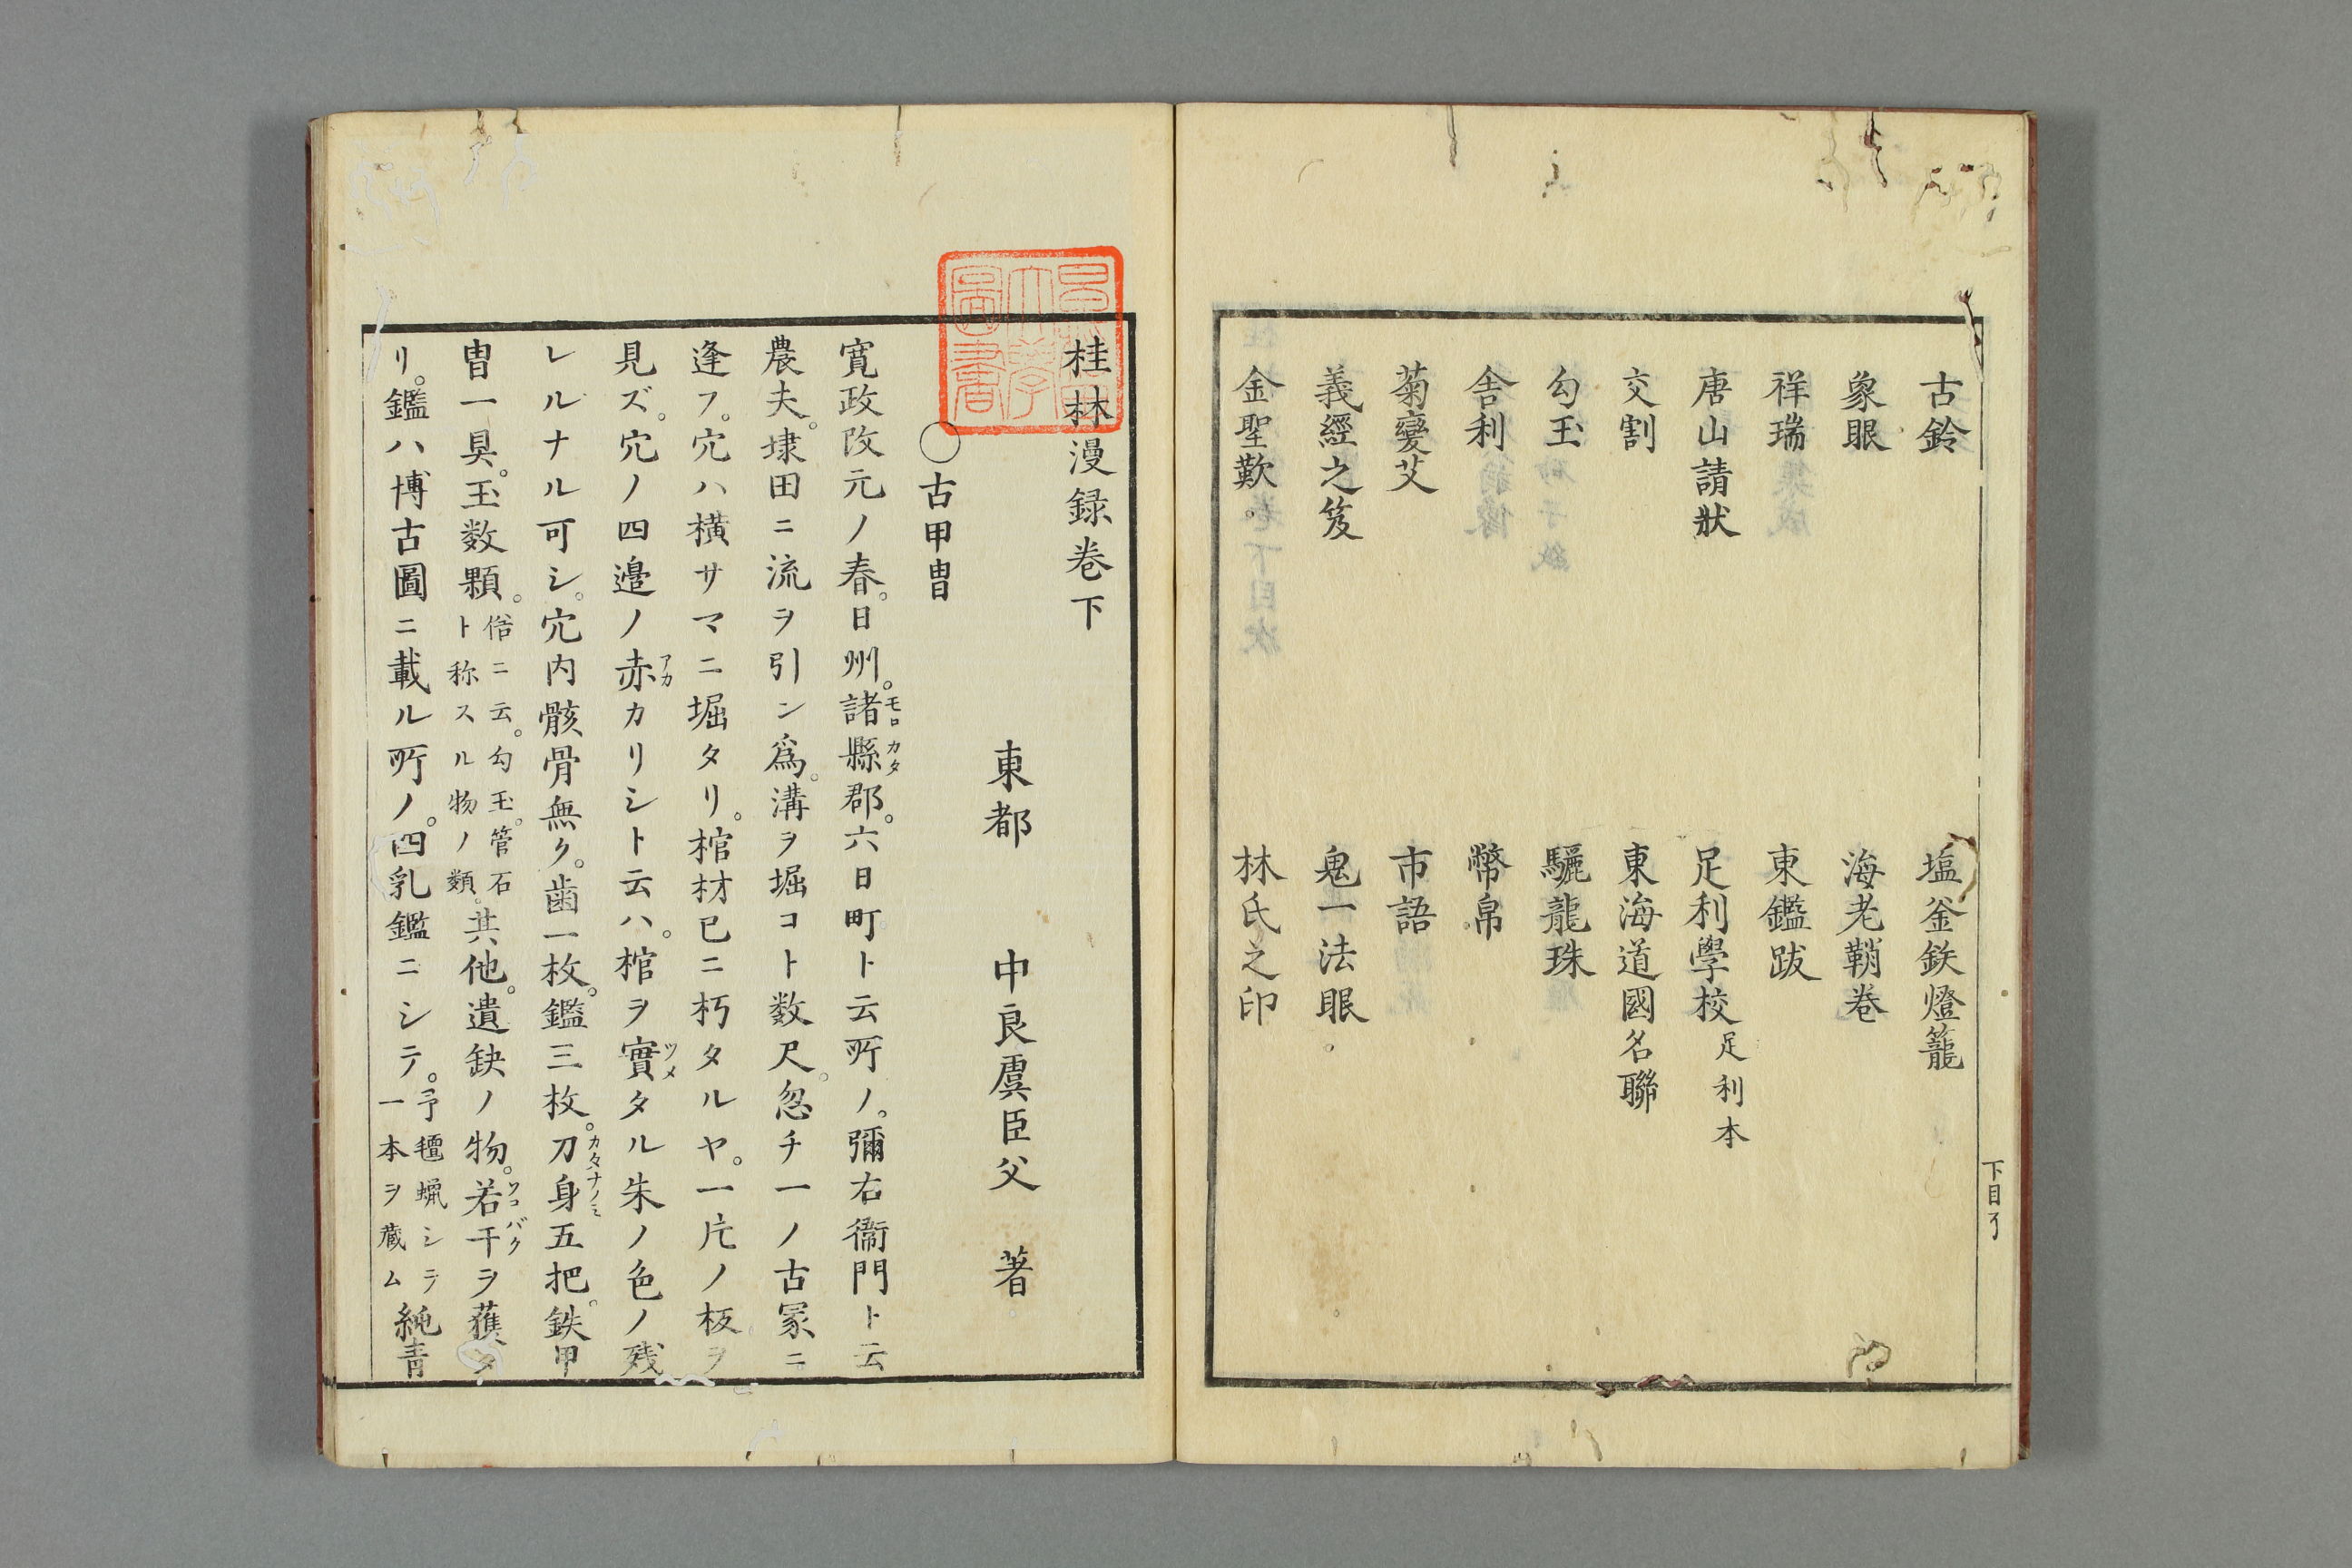 古鈴
塩釜鉄燈籠
象眼
海老鞘巻
祥瑞
東鑑跋
唐山請狀
足利學校足利本
交割
東海道國名聯
勾玉
驪龍珠
舎利
幣帛
菊變艾
市語
義經之笈
鬼一法眼。
金聖歎。
林氏之印
下目
桂林漫録巻下
東都 中良虞臣父 著
〇古甲冑
寛政改元ノ春。日州。諸縣郡。六日町ト云所ノ。彌右衞門ト云
モロカタ
農夫。埭田ニ流ヲ引ン爲。溝ヲ堀コト数尺。忽チ一ノ古冢ニ
逢フ。穴ハ横サマニ堀タリ。棺材已ニ朽タルヤ。一片ノ板ヲ
見ズ。穴ノ四邉ノ赤カリシト云ハ。棺ヲ實タル朱ノ色ノ残
アカ
ツメ
レルナル可シ。穴内骸骨無ク。歯一枚。鑑三枚。刀身五把。鉄甲
カタナノミ
冑一具。玉数顆。俗ニ云。勾玉。管石ト称スル物ノ類。其他。遺缺ノ物。若干ヲ獲タ
ソコバク
リ。鑑ハ博古圖ニ載ル所ノ。四乳鑑ニシテ。予氊蝋シテ一本ヲ蔵ム純青